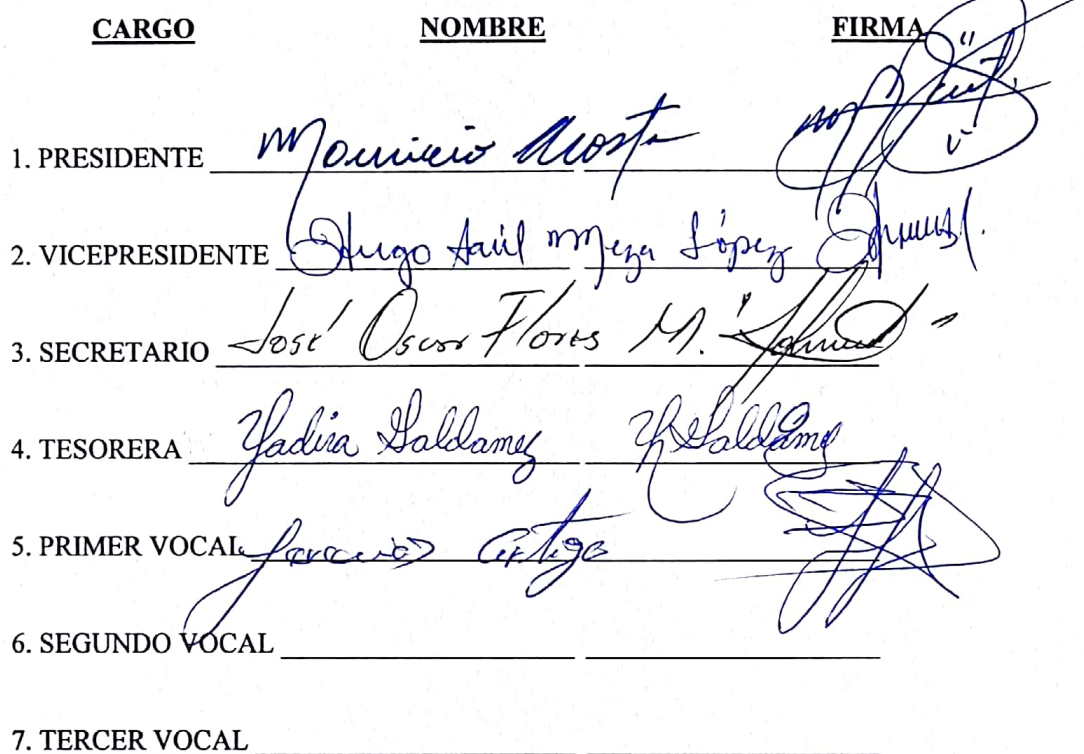 CARGO NOMBRE FIRMA
1. PRESIDENTE Mauricio Acosta
2. VICEPRESIDENTE Hugo Saúl Meza López
3. SECRETARIO José Oscar Flores M.
4. TESORERA Yadira Galdamez Y Galdamez
5. PRIMER VOCAL Artiga
6. SEGUNDO VOCAL
7. TERCER VOCAL